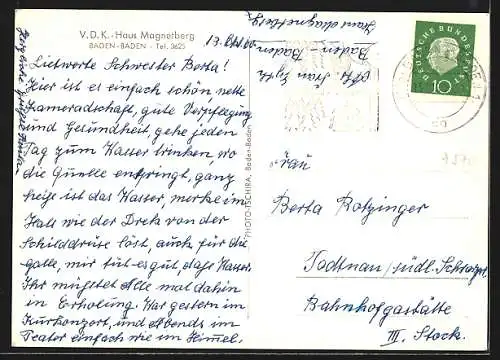 V.D.K.-Haus Magnetberg
BADEN-BADEN - Tel. 3625
13. Okt. 60
Liebwerte Schwester Berta!
Hier ist es einfach schön nette
Kameradschaft, gute Verpflegung
und Gesundheit, gehe jeden
Tag zum Wasser trinken, wo
die Quelle entspringt, ganz
heiße ist das Wasser, merke im
Hals wie der Dreck von der
Schilddrüse löst, auch für die
galle, mir tut es gut, daße Wasser.
Ihr müßtet Alle mal dahin
in Erholung. War gestern im
Kurkonzert, und Abends im
Teater einfach wie im Himmel.
Abs. Frau
Baden-Baden
Haus Magnetberg
PHOTO-TSCHIRA, Baden-Baden
DEUTSCHE BUNDESPOST
10
Frau
Berta Rotzinger
Todtnau/südl. Schwarzw.
Bahnhofgaststätte
III. Stock.